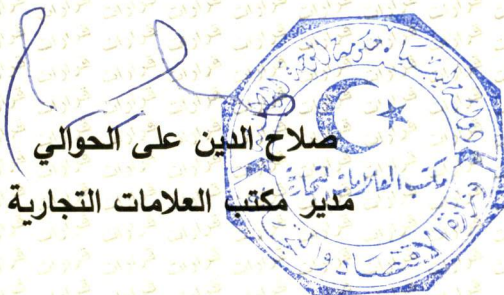 صلاح الدين على الحوالي
مدير مكتب العلامات التجارية
دولة ليبيا حكومة الوحدة الوطنية
مكتب العلامات التجارية
وزارة الاقتصاد والتجارة